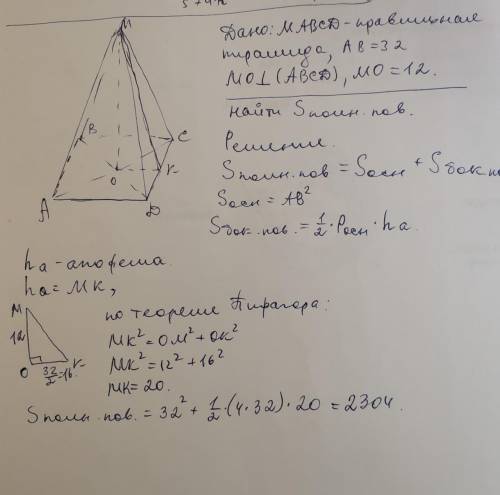 M
B
C
O
K
A
D
Дано: MABCD - правильная
пирамида, AB=32
MO⊥(ABCD), MO=12.
найти Sполн. пов.
Решение.
Sполн. пов = Sосн + Sбок по
Sосн = AB²
Sбок. пов. = 1/2 · Pосн · ha
ha - апофема.
ha = MK,
M
12
O
32/2=16
K
по теореме Пифагора:
MK² = OM² + OK²
MK² = 12² + 16²
MK = 20.
Sполн. пов. = 32² + 1/2 · (4·32) · 20 = 2304.